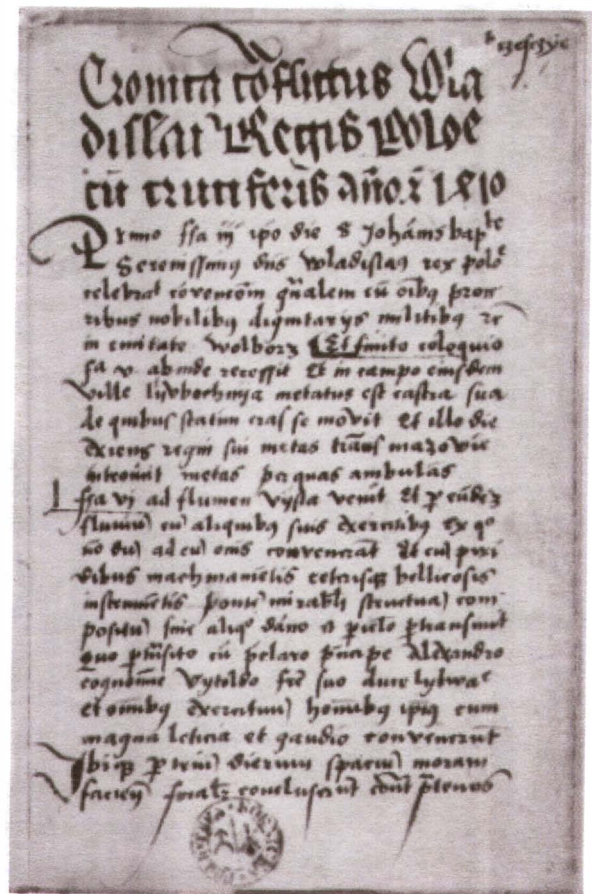 Cronica cōflictus Wla
dislai Regis Polo͞e
cū cruciferis año χ̄ 1410
Primo ffa iij ipo die S Johānis bapᵗᵉ
Serenissimꝰ dns Wladislaꝰ rex polōᵉ
celebraᵗ cōvencōm gñalem cū oībꝰ proce
ribus nobilibꝰ dignitarijs militibꝰ
in civitate Wolborz Et finito coloquio
fa v abinde recessit Et in campo eiusdem
ville lubochnya metatus est castra sua
de quibus statim cras se movit Et illo die
exiens regni sui metas trāns mazovie
metas per quas ambulās
ffa vj ad flumen vysla venit Et ꝑ eūdē
fluviū cū aliquibꝰ suis exercitibꝰ ex qᵒ
nō dū ad eū oīns convenerāt Et cū pixi
dibus machinamētis ceterisqꝫ bellicosis
instrumētis pontē mirabili structura com
positū sine aliqᵒ dāno et ꝑiclo ꝑtransivit
Quo ꝑtransito cū p̄claro p̄ncipe Alexandro
cognomine Vytoldo fr̄e suo duce lytwaᵉ
et omībꝰ exercituū homībꝰ ipiꝰ cum
magna leticia et gaudio convenerūt
Ibiqꝫ ꝑ triū dierum spaciū moram
conclusserūt